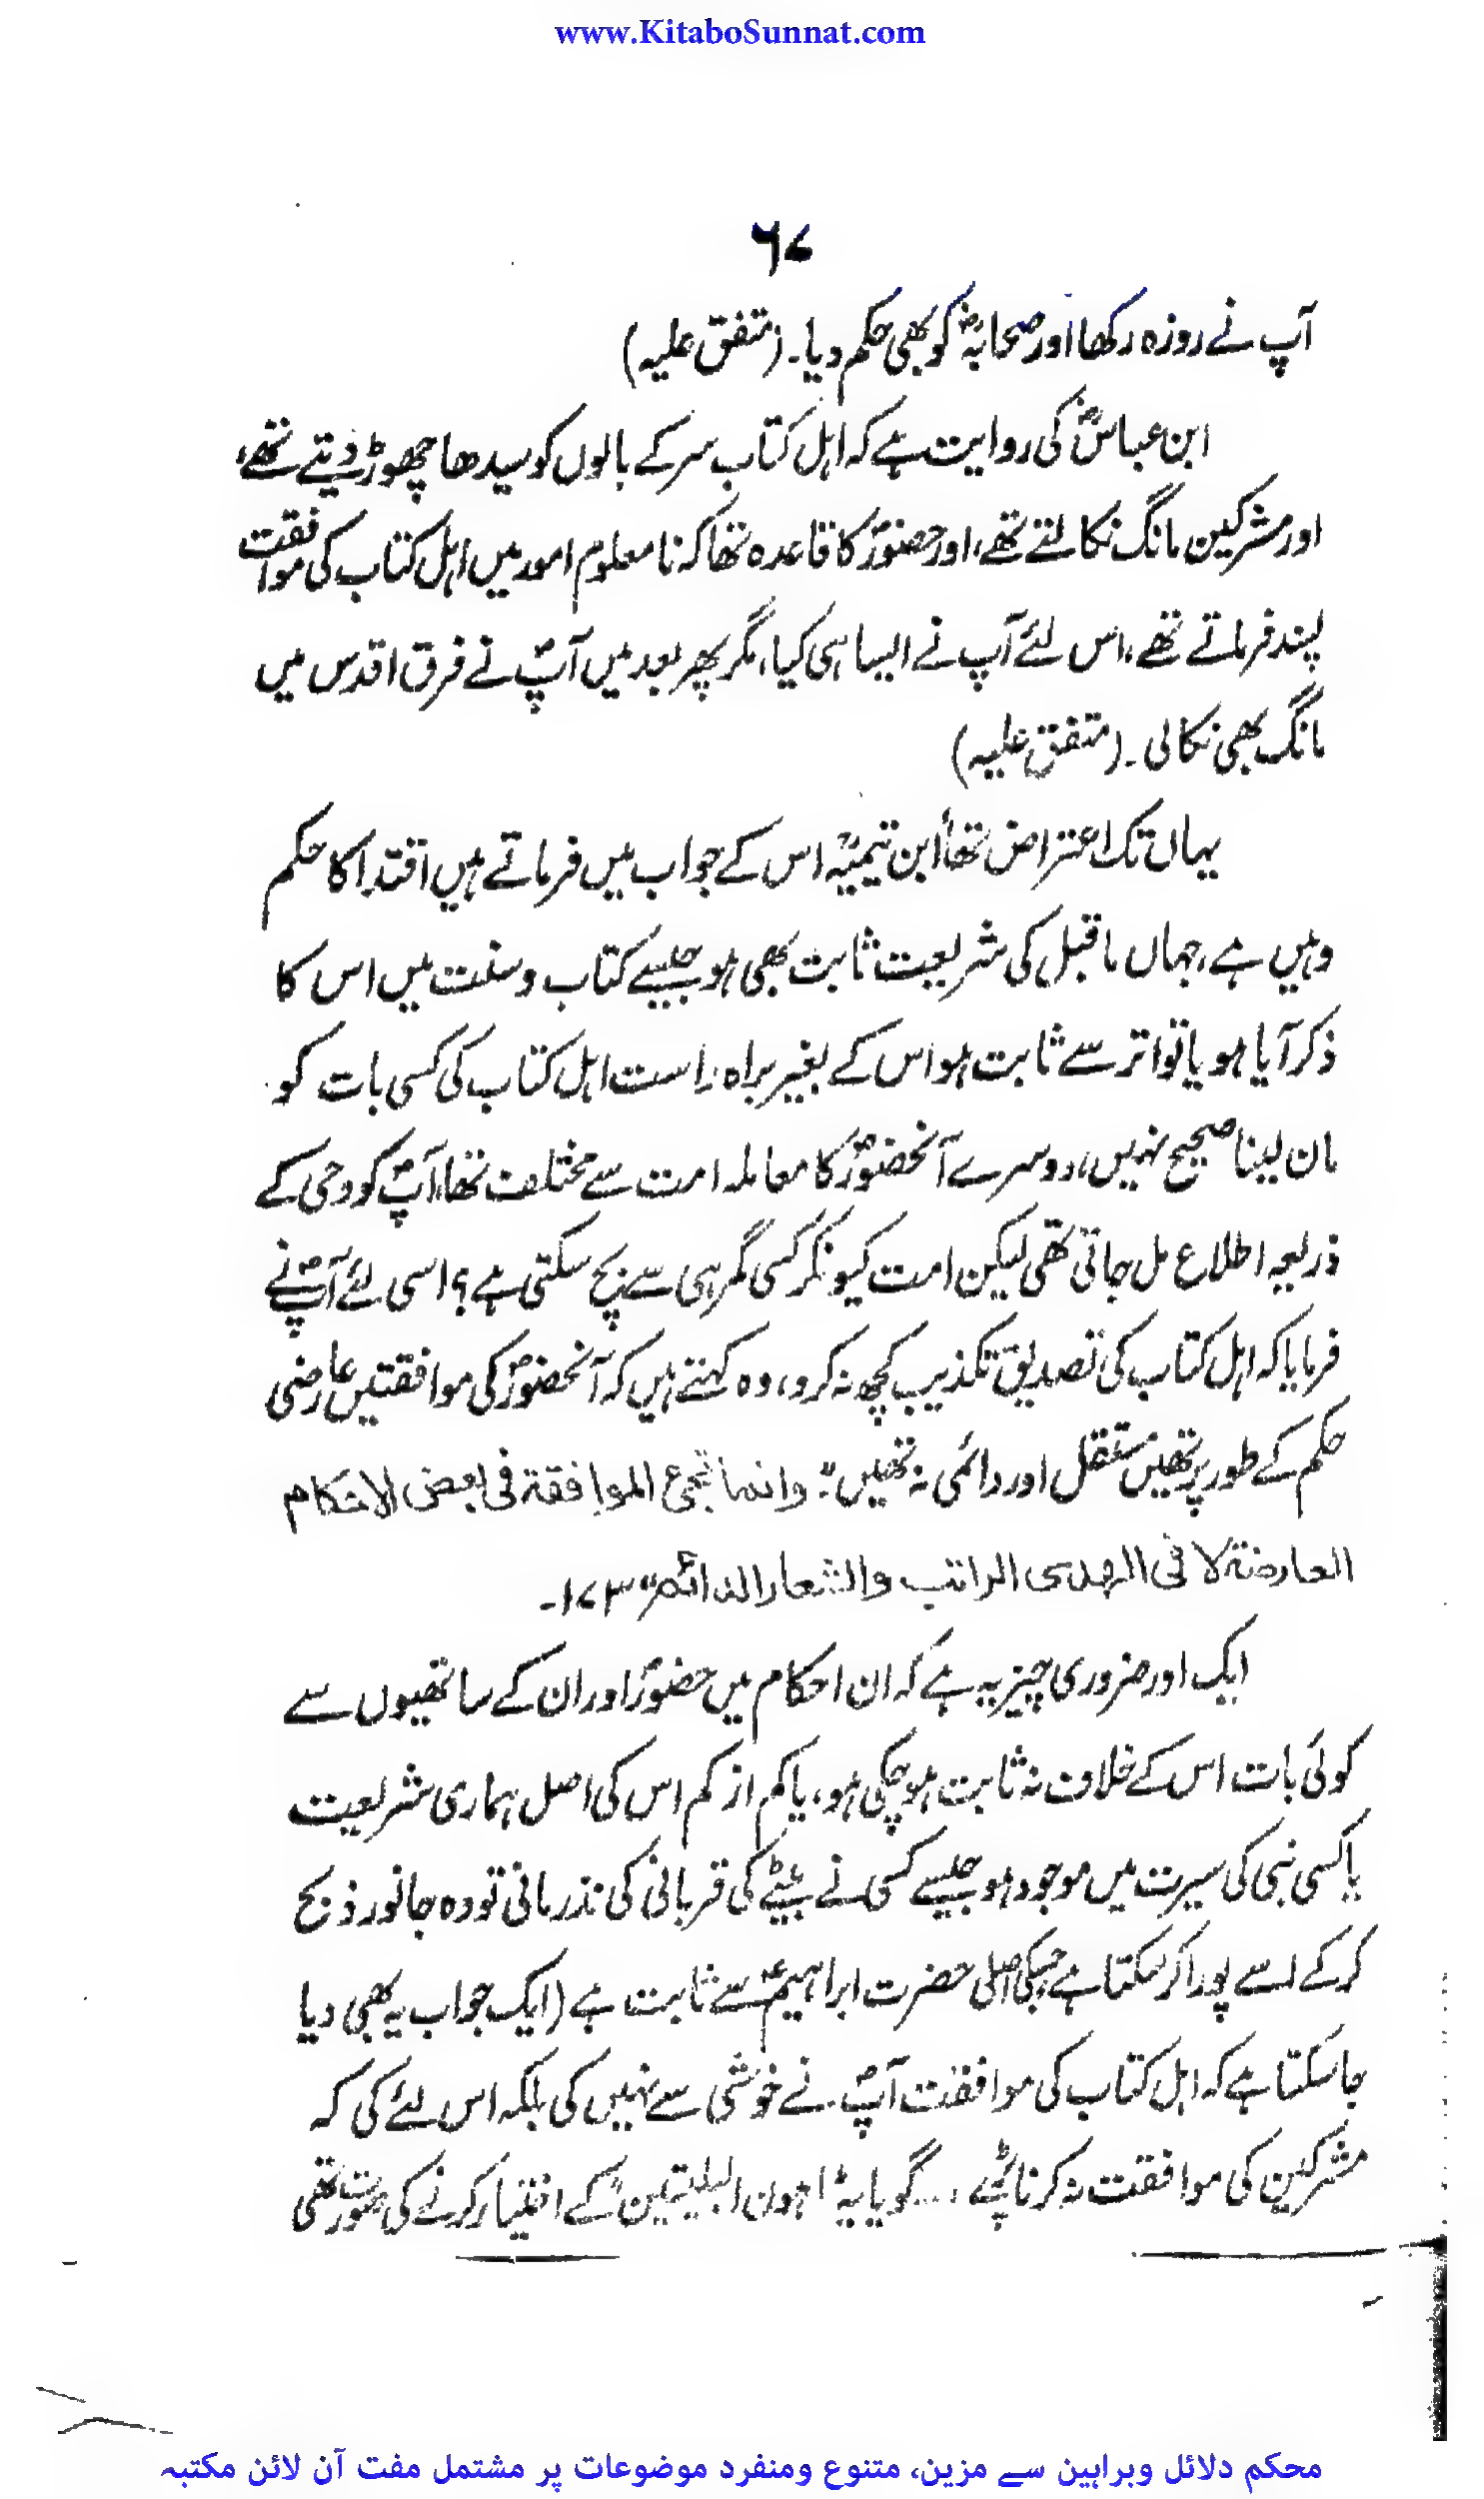 www.KitaboSunnat.com
۶۷
آپ نے روزہ رکھا اور صحابہؓ کو بھی حکم دیا۔ (متفق علیہ)
ابن عباسؓ کی روایت ہے کہ اہل کتاب سر کے بالوں کو سیدھا چھوڑ دیتے تھے،
اور مشرکین مانگ نکالتے تھے، اور حضورؐ کا قاعدہ تھا کہ نامعلوم امور میں اہل کتاب کی موافقت
پسند فرماتے تھے، اس لئے آپ نے ایسا ہی کیا، مگر پھر بعد میں آپؐ نے فرق اقدس میں
مانگ بھی نکالی۔ (متفق علیہ)
یہاں تک اعتراض تھا ابن تیمیہؒ اس کے جواب میں فرماتے ہیں اقتدا کا حکم
وہیں ہے، جہاں ماقبل کی شریعت ثابت بھی ہو جیسے کتاب و سنت میں اس کا
ذکر آیا ہو یا تواتر سے ثابت ہو اس کے بغیر براہ راست اہل کتاب کی کسی بات کو
مان لینا صحیح نہیں، دوسرے آنحضورؐ کا معاملہ امت سے مختلف تھا، آپؐ کو وحی کے
ذریعہ اطلاع مل جاتی تھی لیکن امت کیونکر کسی گمرہی سے بچ سکتی ہے؟ اسی لئے آپؐ نے
فرمایا کہ اہل کتاب کی تصدیق تکذیب کچھ نہ کرو، وہ کہتے ہیں کہ آنحضورؐ کی موافقتیں عارضی
حکم کے طور پر تھیں مستقل اور دائمی نہ تھیں: "وانما تجئ الموافقة فی بعض الاحکام
العارضة لا فی الھدی الراتب والشعار الدائم" ۱۷۳۔
ایک اور ضروری چیز یہ ہے کہ ان احکام میں حضورؐ اور ان کے ساتھیوں سے
کوئی بات اس کے خلاف نہ ثابت ہو چکی ہو، یا کم از کم اس کی اصل ہماری شریعت
یا کسی نبی کی سیرت میں موجود ہو جیسے کسی نے بیٹے کی قربانی کی نذر مانی تو وہ جانور ذبح
کر کے اسے پورا کر سکتا ہے جسکی اصلی حضرت ابراہیمؑ سے ثابت ہے (ایک جواب یہ بھی دیا
جا سکتا ہے کہ اہل کتاب کی موافقت آپؐ نے خوشی سے نہیں کی بلکہ اس لئے کی کہ
مشرکین کی موافقت نہ کرنا پڑے، ... گویا یہ "اہون البلیتین" کے اختیار کرنے کی صورت تھی
محکم دلائل وبراہین سے مزین، متنوع ومنفرد موضوعات پر مشتمل مفت آن لائن مکتبہ